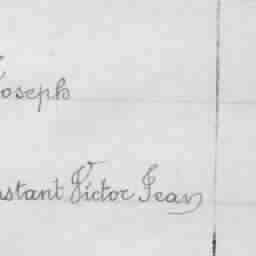 oseph
stant Victor Jean